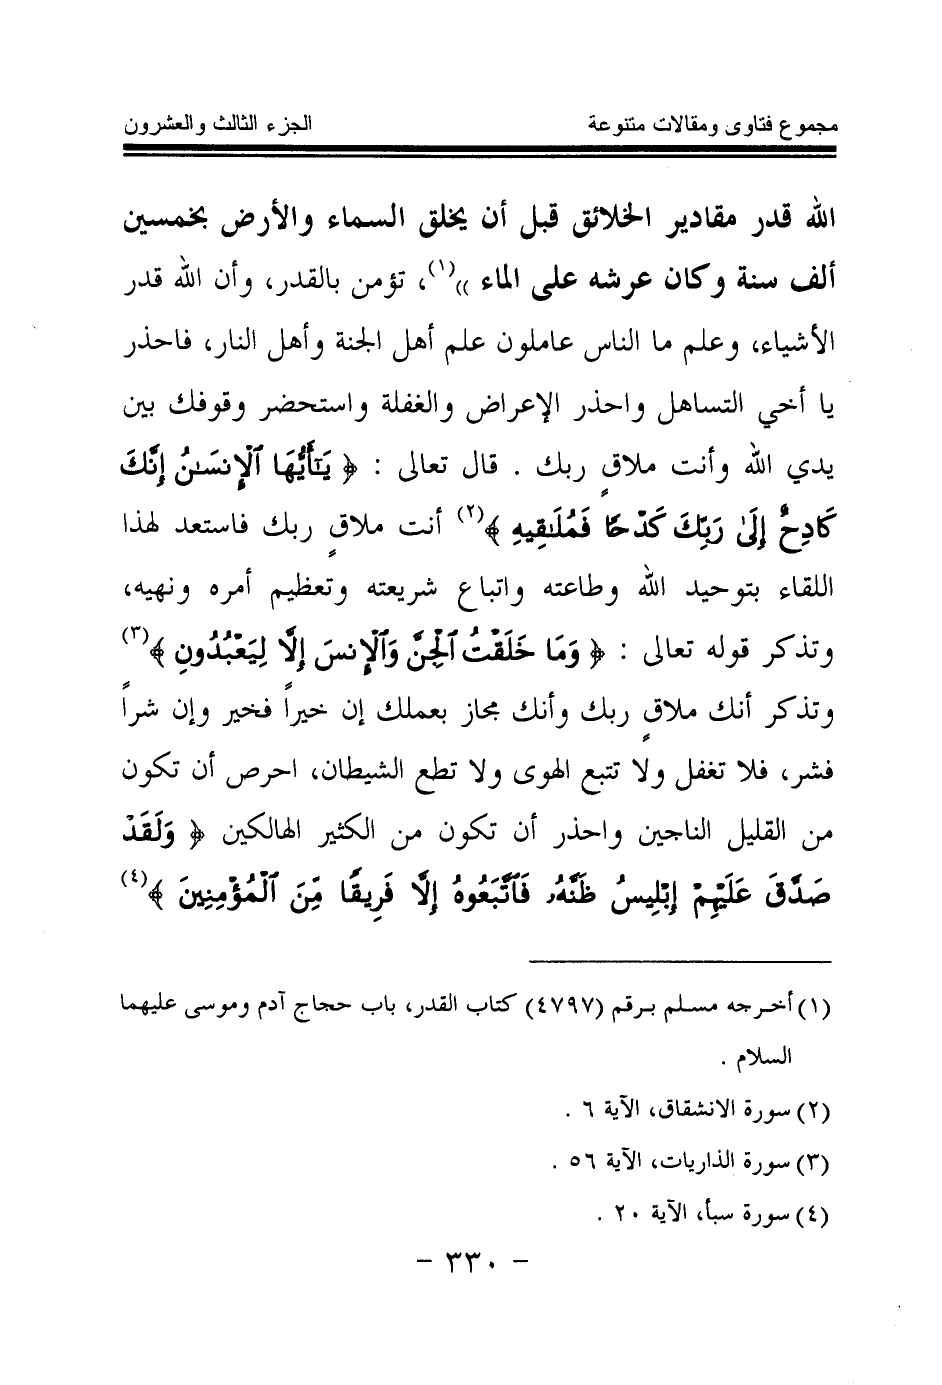 مجموع فتاوى ومقالات متنوعة الجزء الثالث والعشرون
الله قدر مقادير الخلائق قبل أن يخلق السماء والأرض بخمسين
ألف سنة وكان عرشه على الماء »(١)، تؤمن بالقدر، وأن الله قدر
الأشياء، وعلم ما الناس عاملون علم أهل الجنة وأهل النار، فاحذر
يا أخي التساهل واحذر الإعراض والغفلة واستحضر وقوفك بين
يدي الله وأنت ملاقٍ ربك . قال تعالى : ﴿ يَٰٓأَيُّهَا ٱلْإِنسَٰنُ إِنَّكَ
كَادِحٌ إِلَىٰ رَبِّكَ كَدْحًا فَمُلَٰقِيهِ ﴾(٢) أنت ملاقٍ ربك فاستعد لهذا
اللقاء بتوحيد الله وطاعته واتباع شريعته وتعظيم أمره ونهيه،
وتذكر قوله تعالى : ﴿ وَمَا خَلَقْتُ ٱلْجِنَّ وَٱلْإِنسَ إِلَّا لِيَعْبُدُونِ ﴾(٣)
وتذكر أنك ملاقٍ ربك وأنك مجاز بعملك إن خيراً فخير وإن شراً
فشر، فلا تغفل ولا تتبع الهوى ولا تطع الشيطان، احرص أن تكون
من القليل الناجين واحذر أن تكون من الكثير الهالكين ﴿ وَلَقَدْ
صَدَّقَ عَلَيْهِمْ إِبْلِيسُ ظَنَّهُۥ فَٱتَّبَعُوهُ إِلَّا فَرِيقًا مِّنَ ٱلْمُؤْمِنِينَ ﴾(٤)
(١) أخرجه مسلم برقم (٤٧٩٧) كتاب القدر، باب حجاج آدم وموسى عليهما
السلام .
(٢) سورة الانشقاق، الآية ٦ .
(٣) سورة الذاريات، الآية ٥٦ .
(٤) سورة سبأ، الآية ٢٠ .
- ٣٣٠ -